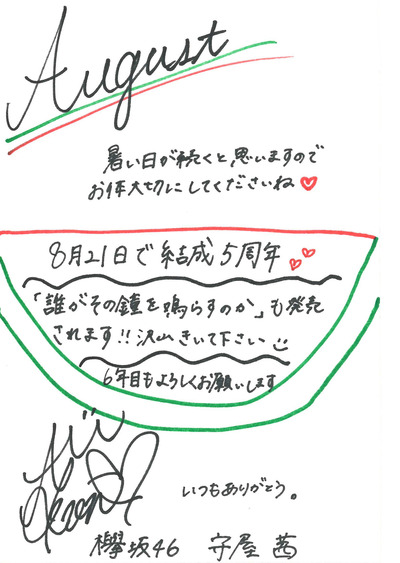 August
暑い日が続くと思いますので
お体大切にしてくださいね
8月21日で結成5周年
「誰がその鐘を鳴らすのか」も発売
されます!!沢山きいて下さい
6年目もよろしくお願いします
いつもありがとう。
欅坂46 守屋茜